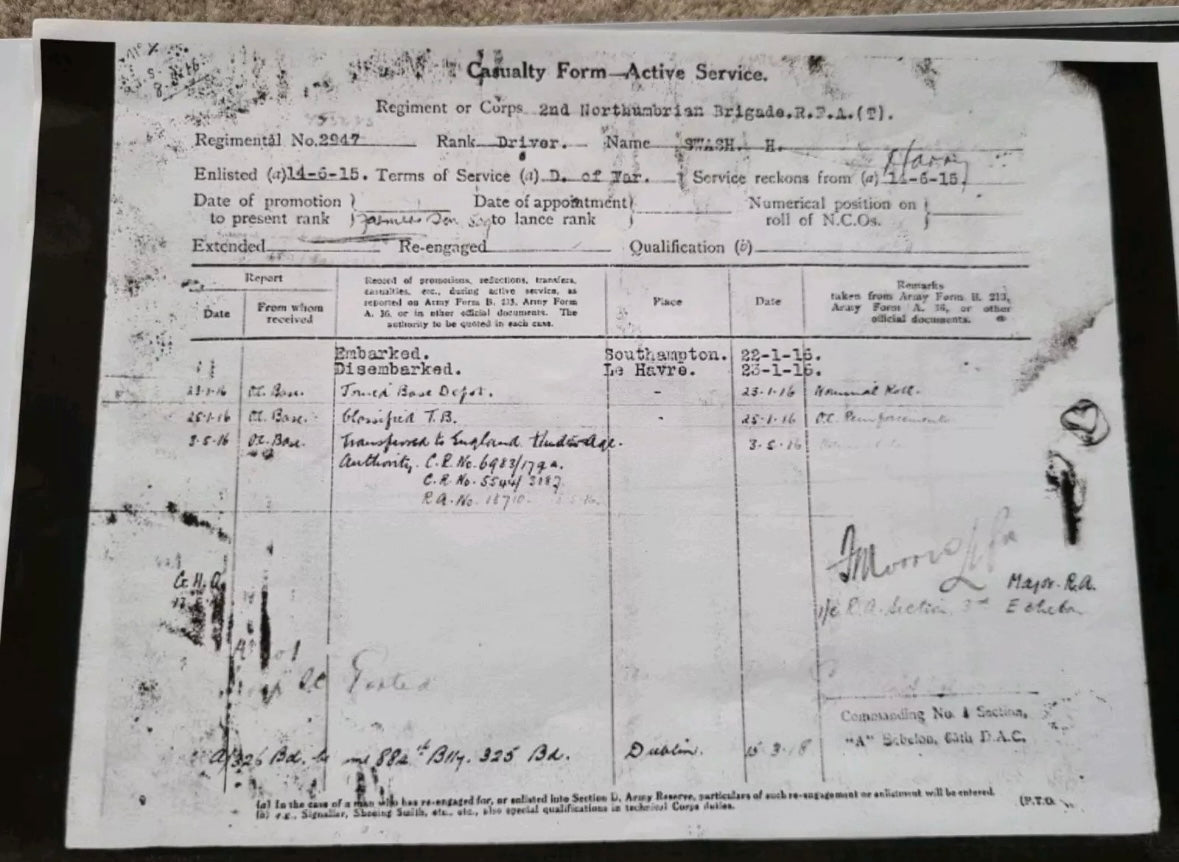 Casualty Form—Active Service.
Regiment or Corps 2nd Northumbrian Brigade.R.F.A.(T).
Regimental No. 2947 Rank Driver. Name SWASH. H.
Harry
Enlisted (a) 14-6-15. Terms of Service (a) D. of War. Service reckons from (a) 14-6-15.
Date of promotion } Date of appointment } Numerical position on }
to present rank } Farmers Son to lance rank } roll of N.C.Os. }
Extended Re-engaged Qualification (b)
Report
Date
From whom
received
Record of promotions, reductions, transfers,
casualties, etc., during active service, as
reported on Army Form B. 213, Army Form
A. 36, or in other official documents. The
authority to be quoted in each case.
Place
Date
Remarks
taken from Army Form B. 213,
Army Form A. 36, or other
official documents.
Embarked. Southampton. 22-1-16.
Disembarked. Le Havre. 23-1-16.
23-1-16 O.C. Base. Joined Base Depot. - 23-1-16 Nominal Roll.
25-1-16 O.C. Base. Classified T.B. - 25-1-16 O.C. Reinforcements
3-5-16 O.C. Base. Transferred to England Under Age. 3-5-16
Authority. C.R. No. 6983/179a.
C.R. No. 5544/3187
R.A. No. 18710.
Major. R.A.
i/c R.A. Section 3rd Echelon
Posted
Commanding No. 1 Section,
"A" Echelon, 63th D.A.C.
A/326 Bd. 882nd Bty. 325 Bd. Dublin.
(a) In the case of a man who has re-engaged for, or enlisted into Section D, Army Reserve, particulars of such re-engagement or enlistment will be entered
(b) e.g., Signaller, Shoeing Smith, etc., etc., also special qualifications in technical Corps duties. (P.T.O.